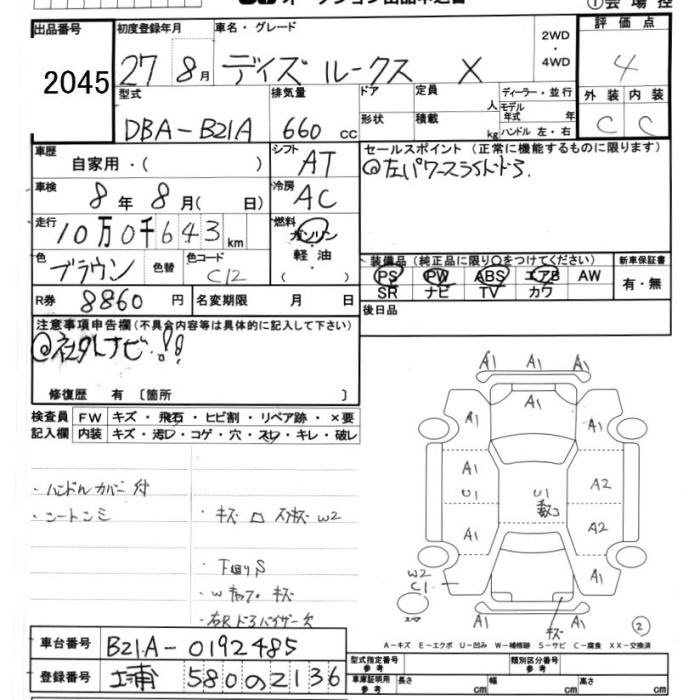 ①会場控
出品番号
2045
初度登録年月
27 8月
車名・グレード
デイズ ルークス X
2WD
・
4WD
評価点
4
外装 内装
C C
型式
DBA-B21A
排気量
660 cc
ドア
形状
定員
人
積載
kg
ディーラー・並行
モデル年式 年
ハンドル 左・右
車歴
自家用・( )
シフト
AT
車検
8年 8月( 日)
冷房
AC
走行
10万0千643km
燃料
ガソリン
・
軽油
・
( )
色
ブラウン
色替
色コード
C12
R券 8860円
名変期限 月 日
セールスポイント(正常に機能するものに限ります)
@左パワースライドドア.
装備品(純正品に限り○をつけてください)
PS PW ABS エアB AW
SR ナビ TV カワ
新車保証書
有・無
後日品
注意事項申告欄(不具合内容等は具体的に記入して下さい)
@社外ナビ!!
修復歴 有 〔箇所 〕
検査員
記入欄
FW キズ・飛石・ヒビ割・リペア跡・×要
内装 キズ・汚レ・コゲ・穴・スレ・キレ・破レ
・ハンドルカバー付
・シートシミ
・下回りS
・右Rドアバイザー欠
A1 A1 A1
A1
A1 A1
A1 A2
U1 U1
A1 A2
W2
C1
A1
A1 A1
キズ
スペア
②
A-キズ E-エクボ U-凹み W-補修跡 S-サビ C-腐食 XX-交換済
車台番号 B21A-0192485
登録番号 580 の 2136
型式指定番号
参考
類別区分番号
参考
車庫証明用
参考
長さ cm 幅 cm 高さ cm